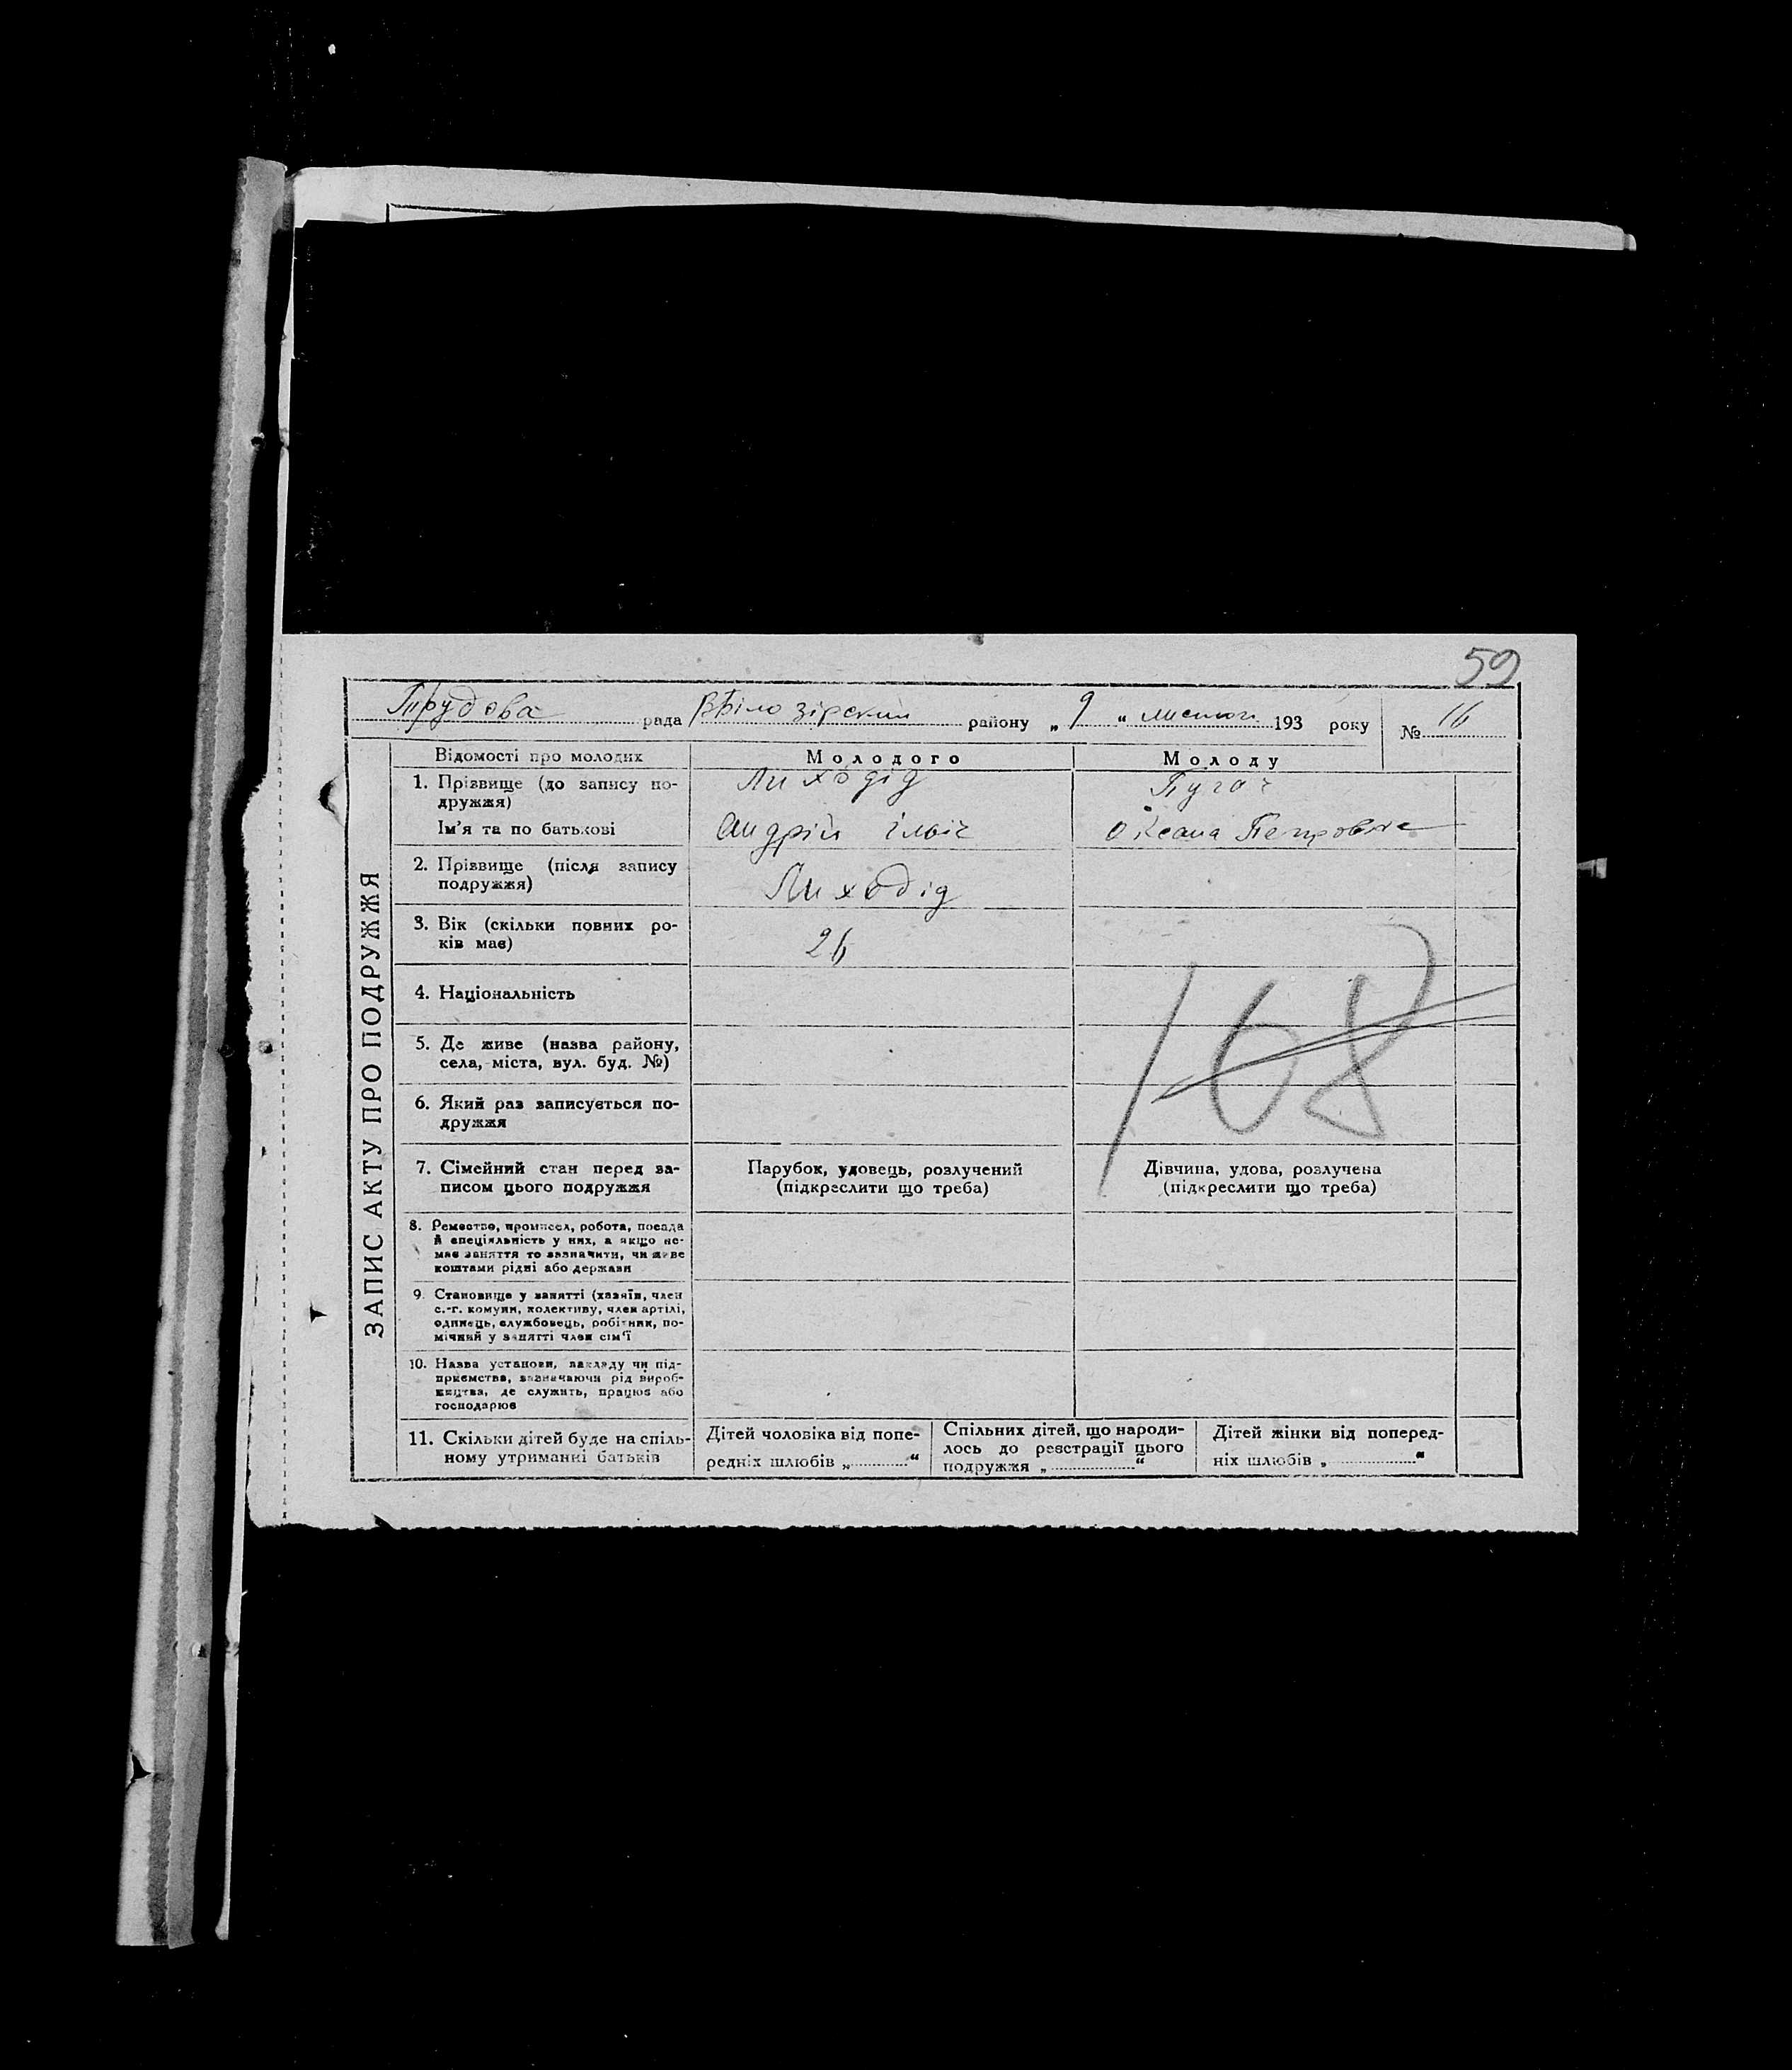 59
Трудова рада В Білозірський району „ 9 “ лютого 193 року № 16
ЗАПИС АКТУ ПРО ПОДРУЖЖЯ
Відомості про молодих
Молодого
Молоду
1. Прізвище (до запису по-
дружжя)
Лиходід
Пугач
Ім'я та по батькові
Андрій Ільіч
Оксана Петровна
2. Прізвище (після запису
подружжя)
Лиходід
3. Вік (скільки повних ро-
ків має)
26
4. Національність
168
5. Де живе (назва району,
села, міста, вул. буд. №)
6. Який раз записується по-
дружжя
7. Сімейний стан перед за-
писом цього подружжя
Парубок, удовець, розлучений
(підкреслити що треба)
Дівчина, удова, розлучена
(підкреслити що треба)
8. Ремество, промисел, робота, посада
й спеціяльність у них, а якщо не-
має заняття то зазначити, чи живе
коштами рідні або держави
9. Становище у занятті (хазяїн, член
с.-г. комуни, колективу, член артілі,
одинець, службовець, робітник, по-
мічний у занятті член сім'ї
10. Назва установи, закладу чи під-
приємства, зазначаючи рід вироб-
ництва, де служить, працює або
господарює
11. Скільки дітей буде на спіль-
ному утриманні батьків
Дітей чоловіка від попе-
редніх шлюбів „ “
Спільних дітей, що народи-
лось до реєстрації цього
подружжя „ “
Дітей жінки від поперед-
ніх шлюбів „ “